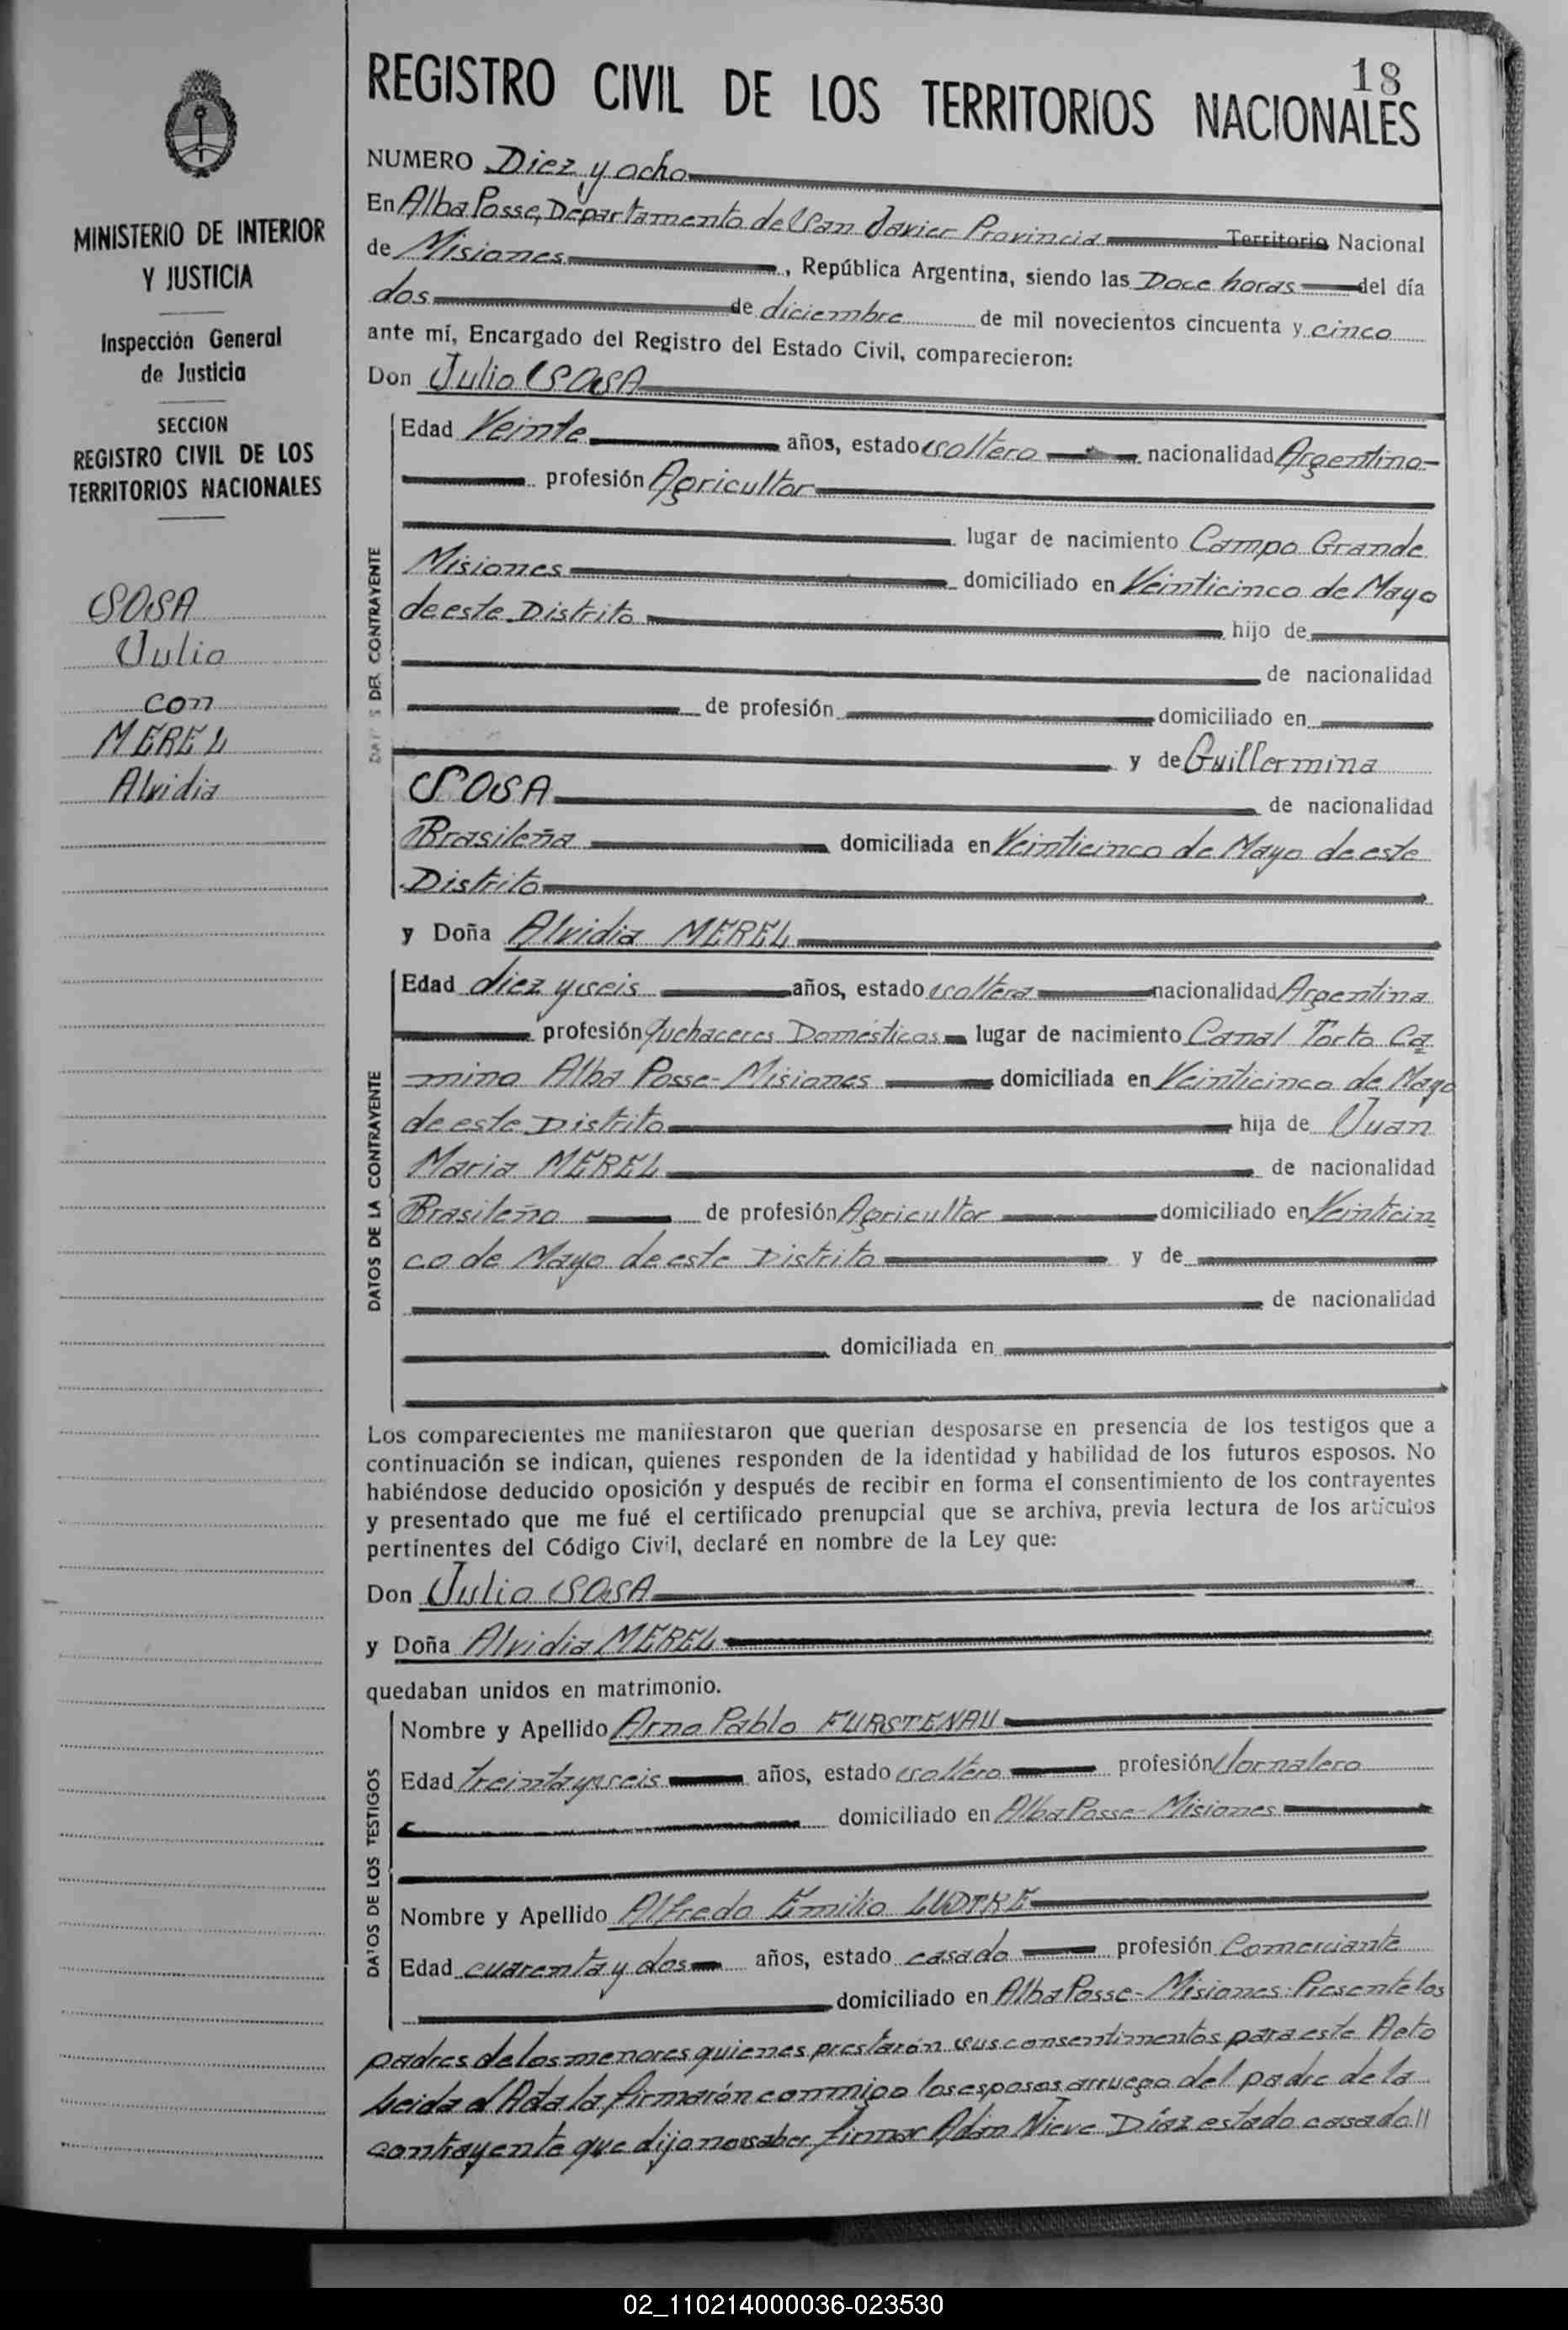 18
REGISTRO CIVIL DE LOS TERRITORIOS NACIONALES
MINISTERIO DE INTERIOR
Y JUSTICIA
Inspección General
de Justicia
SECCION
REGISTRO CIVIL DE LOS
TERRITORIOS NACIONALES
SOSA
Julio
con
MEREL
Alvidia
NUMERO Diez y ocho
En Alba Posse, Departamento de San Javier Provincia Territorio Nacional
de Misiones, República Argentina, siendo las Doce horas del día
dos de diciembre de mil novecientos cincuenta y cinco
ante mí, Encargado del Registro del Estado Civil, comparecieron:
Don Julio SOSA
DEL CONTRAYENTE
Edad Veinte años, estado soltero nacionalidad Argentino
profesión Agricultor
lugar de nacimiento Campo Grande
Misiones domiciliado en Veinticinco de Mayo
de este Distrito hijo de
de nacionalidad
de profesión domiciliado en
y de Guillermina
SOSA de nacionalidad
Brasileña domiciliada en Veinticinco de Mayo de este
Distrito
y Doña Alvidia MEREL
DATOS DE LA CONTRAYENTE
Edad diez y seis años, estado soltera nacionalidad Argentina
profesión Quehaceres Domésticos lugar de nacimiento Canal Torto Ca
mino Alba Posse-Misiones domiciliada en Veinticinco de Mayo
de este Distrito hija de Juan
Maria MEREL de nacionalidad
Brasileño de profesión Agricultor domiciliado en Veinticin
co de Mayo de este Distrito y de
de nacionalidad
domiciliada en
Los comparecientes me manifestaron que querían desposarse en presencia de los testigos que a
continuación se indican, quienes responden de la identidad y habilidad de los futuros esposos. No
habiéndose deducido oposición y después de recibir en forma el consentimiento de los contrayentes
y presentado que me fué el certificado prenupcial que se archiva, previa lectura de los artículos
pertinentes del Código Civil, declaré en nombre de la Ley que:
Don Julio SOSA
y Doña Alvidia MEREL
quedaban unidos en matrimonio.
DATOS DE LOS TESTIGOS
Nombre y Apellido Arno Pablo FURSTENAU
Edad treinta y seis años, estado soltero profesión Jornalero
domiciliado en Alba Posse-Misiones
Nombre y Apellido Alfredo Emilio LUDTKE
Edad cuarenta y dos años, estado casado profesión Comerciante
domiciliado en Alba Posse-Misiones: Presente los
padres de los menores quienes prestarón sus consentimentos para este Acto
Leida el Acta la firmarón conmigo los esposos arruego del padre de la
contrayente que dijo no saber firmar Adan Nieve Díaz estado casado//
02_110214000036-023530